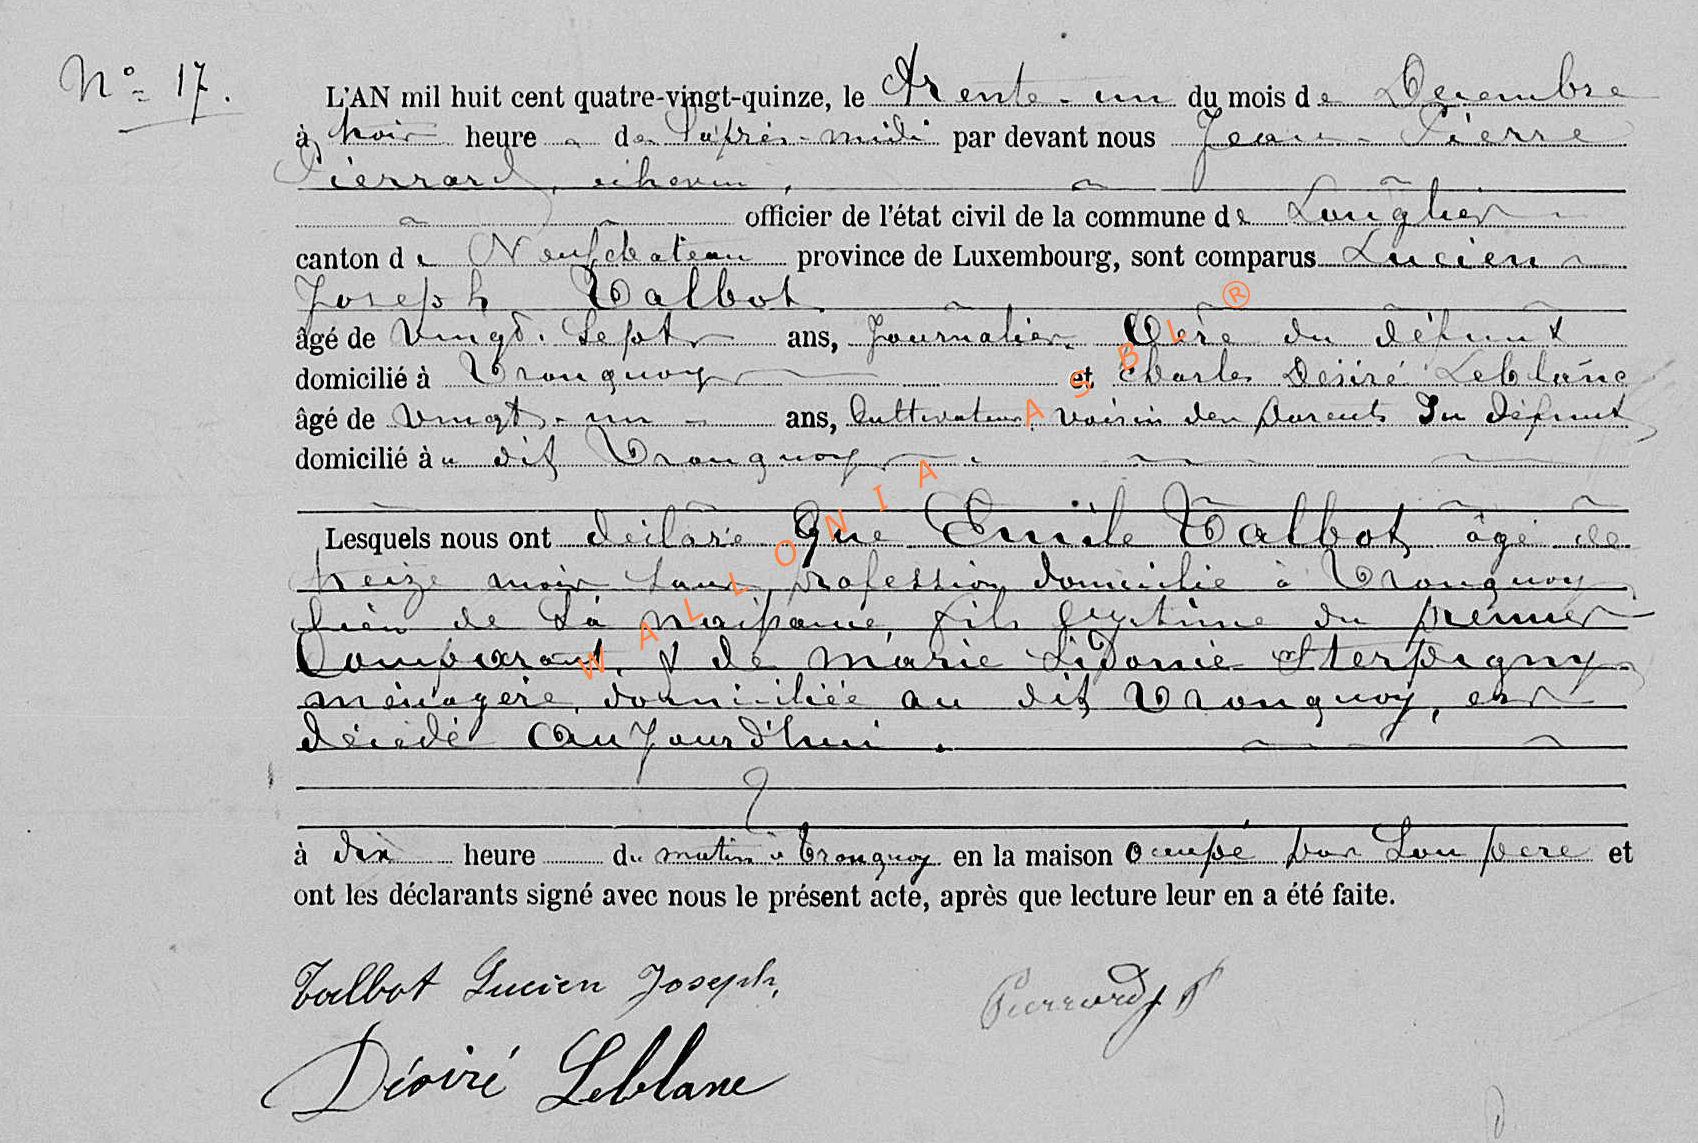 N° 17.
L'AN mil huit cent quatre-vingt-quinze, le Trente-un du mois de Decembre
à trois heure de l'après-midi par devant nous Jean-Pierre
Pierrard, échevin,
officier de l'état civil de la commune de Longlier
canton de Neufchateau province de Luxembourg, sont comparus Lucien
Joseph Talbot
âgé de Vingt-Sept ans, Journalier Père du défunt
domicilié à Tronquoy et Charles Désiré Leblanc
âgé de Vingt-un ans, Cultivateur voisin des parents du défunt
domicilié au dit Tronquoy
Lesquels nous ont déclaré Que Emile Talbot âgé de
treize mois sans profession domicilié à Tronquoy
lieu de sa naissance, fils légitime du premier
Comparant, & de Marie Sidonie Sterpigny
ménagère domiciliée au dit Tronquoy, est
décédé Aujourd'hui.
à dix heure du matin à Tronquoy en la maison occupé par son père et
ont les déclarants signé avec nous le présent acte, après que lecture leur en a été faite.
Talbot Lucien Joseph, Pierrard
Désiré Leblanc
WALLONIA ASBL ®